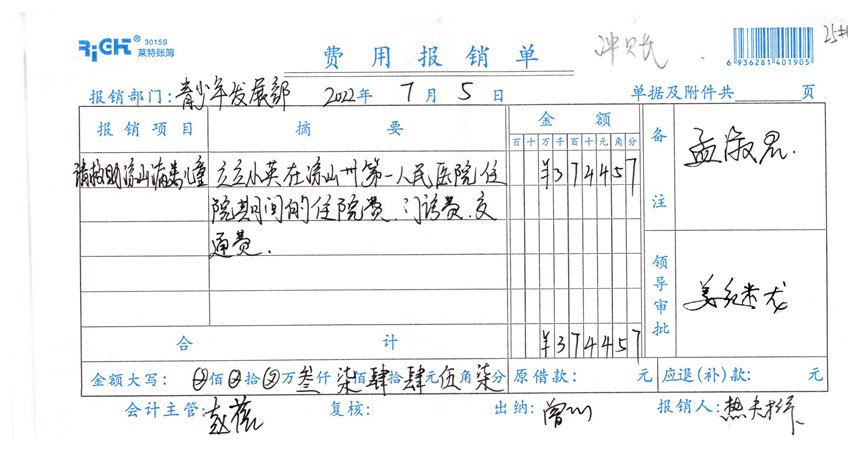 RiGHT® 3015S
莱特账簿
费用报销单
冲贝氏
6 936281 401905
25#
报销部门: 青少年发展部 2022年 7月 5日 单据及附件共 页
报销项目 摘要 金额 备注
百十万千百十元角分
请救助凉山病患儿童 立立小英在凉山州第一人民医院住 ¥374457
院期间的住院费、门诊费、交
通费.
领导审批
合计 ¥374457
金额大写: 佰 拾 万叁仟柒佰肆拾肆元伍角柒分 原借款: 元 应退(补)款: 元
会计主管: 复核: 出纳: 报销人: